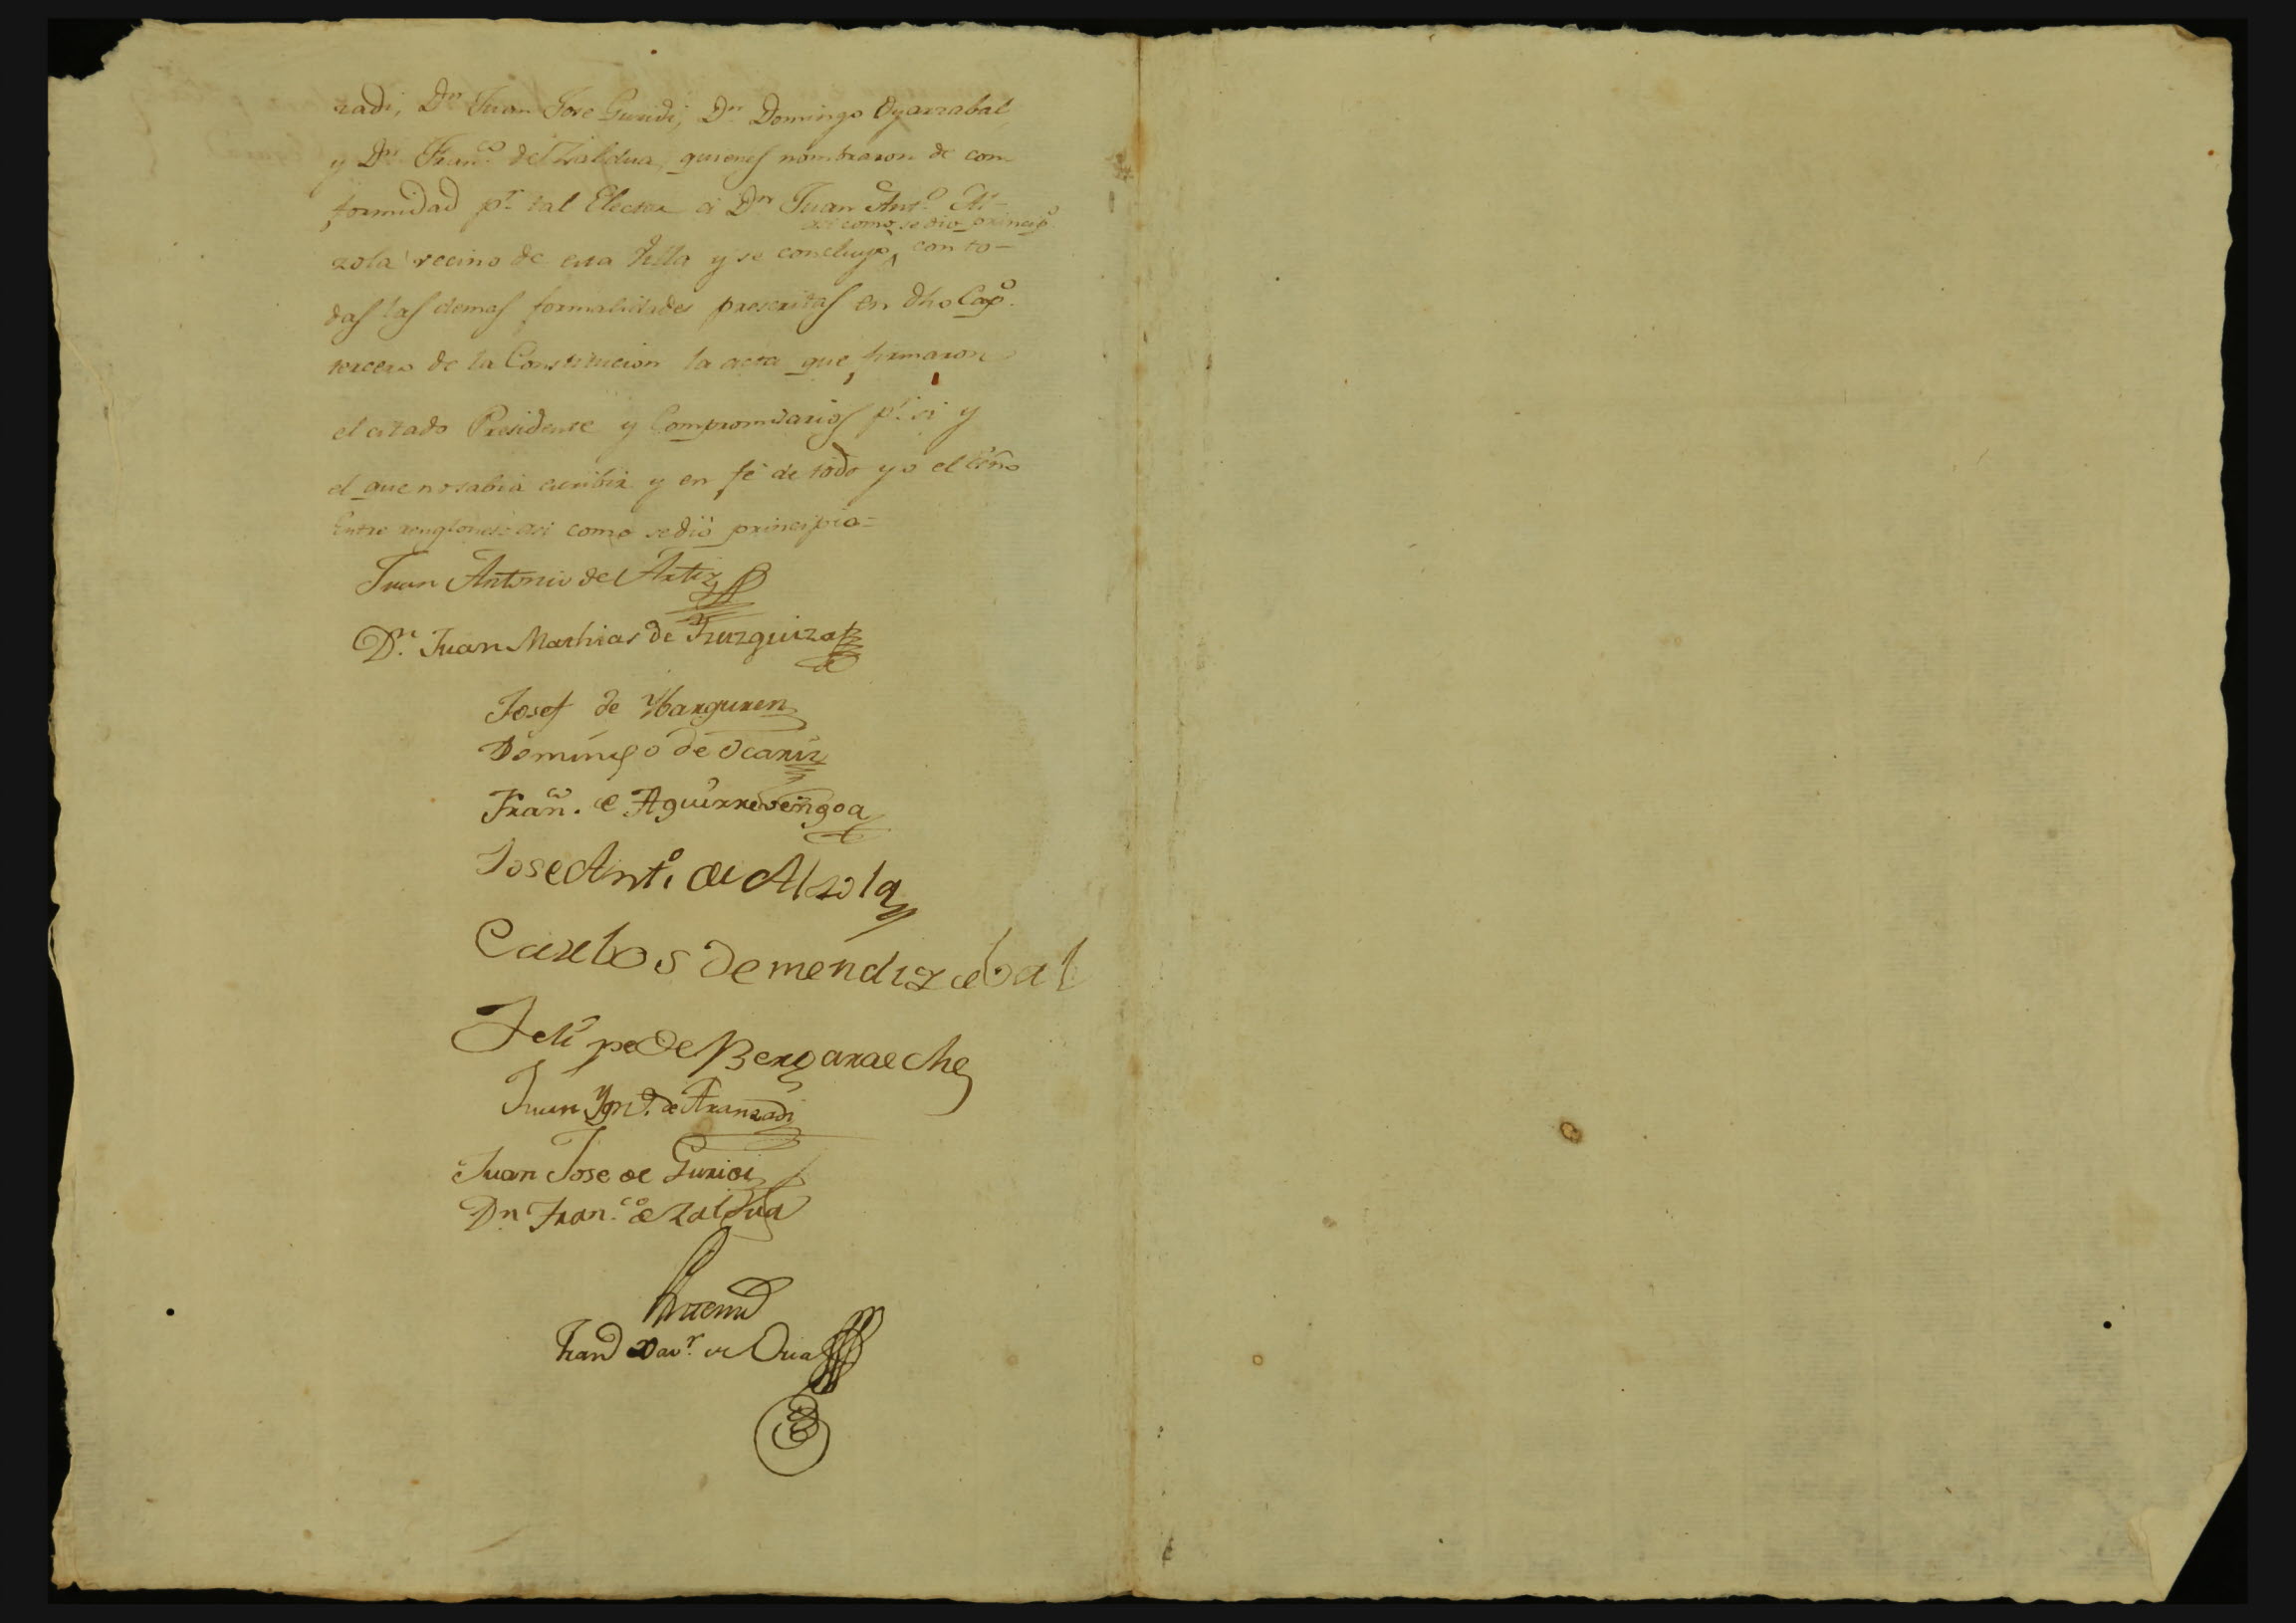 zadi, Dn Juan Jose Guridi, Dn Domingo Oyarzabal,
y Dn Franco. de Zaldua, quienes nombraron de con-
formidad pr. tal Elector á Dn Juan Anto. Al-
asi como se dio principo.
zola vecino de esta Villa y se concluyó, con to-
das las demas formalidades prescritas en dho Capo.
tercero de la Constitucion la acta que firmaron
el citado Presidente y Compromisarios pr. si y
el que no sabia escribir y en fé de todo yo el Esño
Entre renglones: asi como se dió principio=
Juan Antonio de Artiz
Dn. Juan Mathias de Yruzquiza
Josef de Ybarguren
Domingo de Ocariz
Franco. de Aguirrevengoa
Jose Anto. de Alzola
Carlos de mendizabal
Felipe de Bergaraeche
Juan Ygno. de Aranzadi
Juan Jose de Guridi
Dn Franco. de Zaldua
Franco Xavr. de Oria